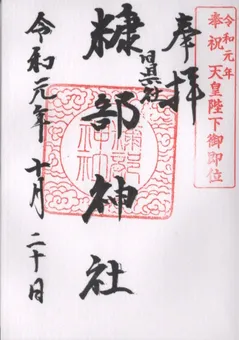 令和元年
奉祝 天皇陛下御即位
奉拝
旧県社
糠部神社
令和元年十月二十日